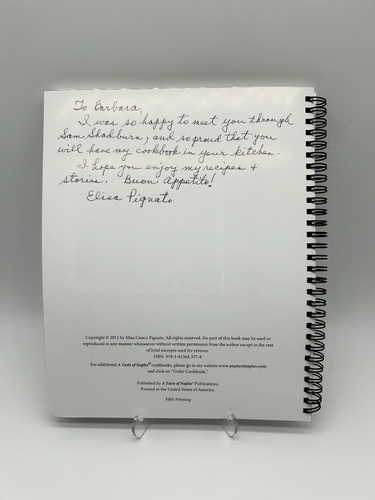 To Barbara,
I was so happy to meet you through
Sam Shadburn, and so proud that you
will have my cookbook in your kitchen.
I hope you enjoy my recipes +
stories. Buon Appetito!
Elisa Pignato
Copyright © 2011 by Elisa Cuoco Pignato. All rights reserved. No part of this book may be used or
reproduced in any manner whatsoever without written permission from the author except in the case
of brief excerpts used for reviews
ISBN: 978-1-61364-377-8
For additional A Taste of Naples® cookbooks, please go to my website www.atasteofnaples.com
and click on "Order Cookbook."
Published by A Taste of Naples® Publications.
Printed in the United States of America.
Fifth Printing